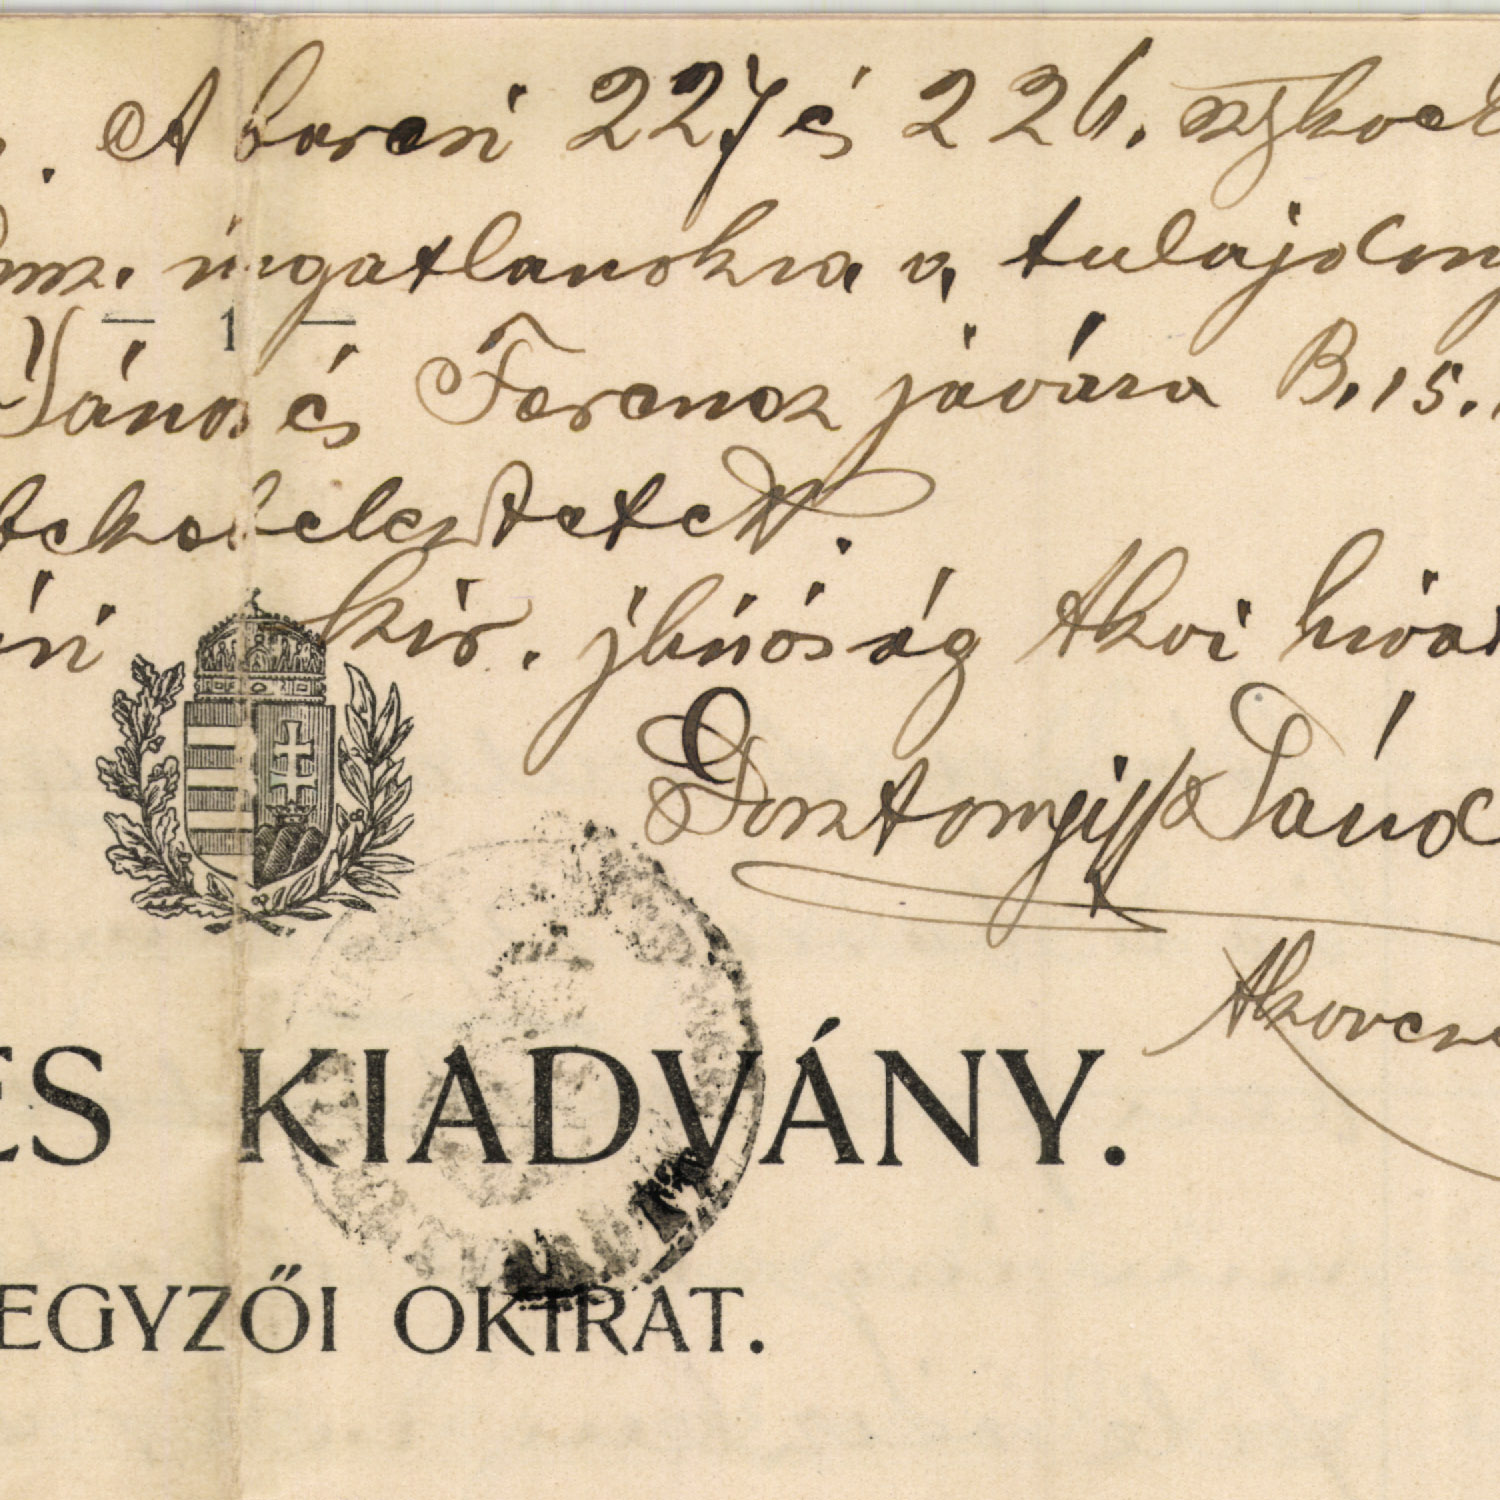 . A barcsi 227 és 226. sztjkvek
ingatlanokra a tulajdonj
— 1 —
János és Ferencz javára B. 15.
tekebeleztetett.
kir. jbiróság tkvi hivat
Dosztonyi Sánd
tkvvez
ES KIADVÁNY.
EGYZŐI OKIRAT.